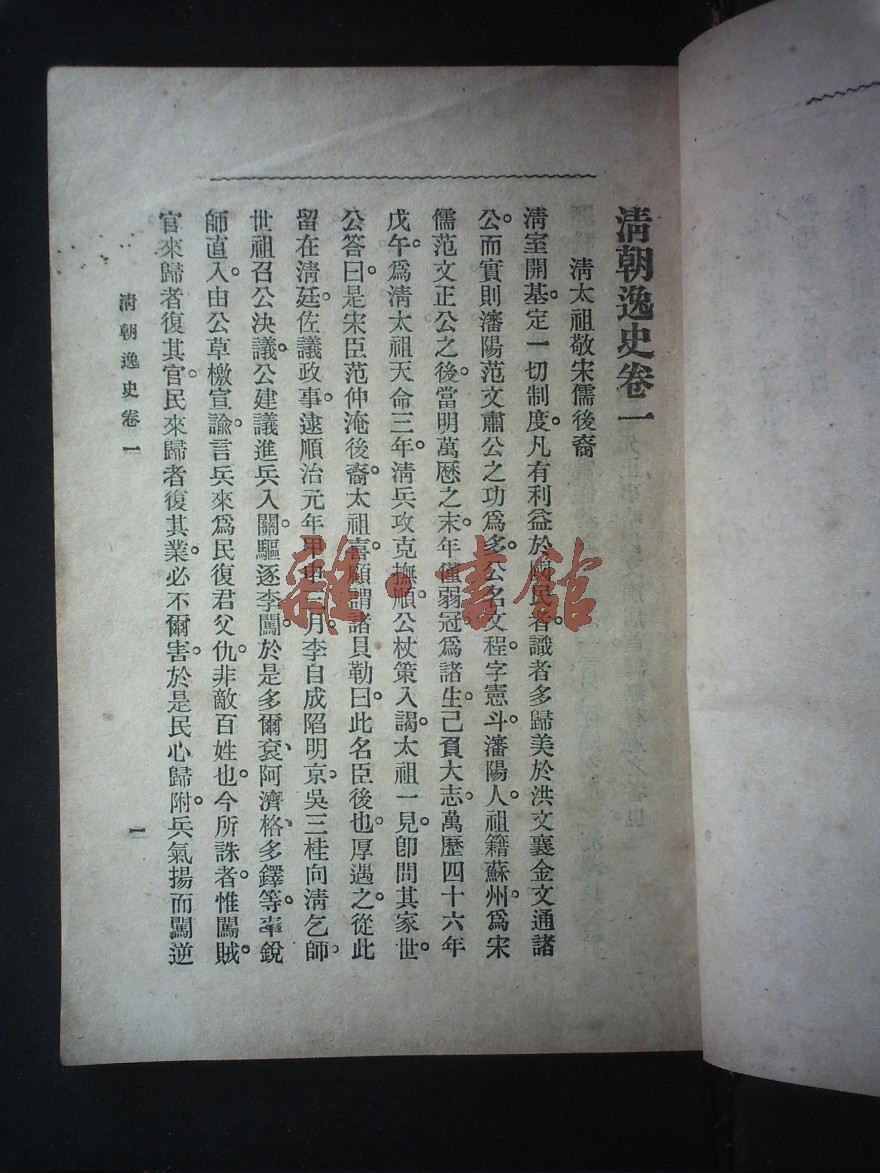 清朝逸史卷一
清太祖敬宋儒後裔
清室開基。定一切制度。凡有利益於國民者。識者多歸美於洪文襄金文通諸
公。而實則瀋陽范文肅公之功爲多。公名文程。字憲斗。瀋陽人。祖籍蘇州。爲宋
儒范文正公之後。當明萬歷之末。年僅弱冠爲諸生。己負大志。萬歷四十六年
戊午。爲清太祖天命三年。清兵攻克撫順。公杖策入謁。太祖一見卽問其家世。
公答曰。是宋臣范仲淹後裔。太祖喜。顧謂諸貝勒曰。此名臣後也。厚遇之。從此
留在清廷。佐議政事。逮順治元年甲申三月。李自成陷明京。吳三桂向清乞師。
世祖召公決議。公建議進兵入關。驅逐李闖。於是多爾袞、阿濟格、多鐸等。率銳
師直入。由公草檄宣諭。言兵來爲民復君父仇。非敵百姓也。今所誅者。惟闖賊。
官來歸者復其官。民來歸者復其業。必不爾害。於是民心歸附。兵氣揚而闖逆
清朝逸史卷一
一
雜·書館